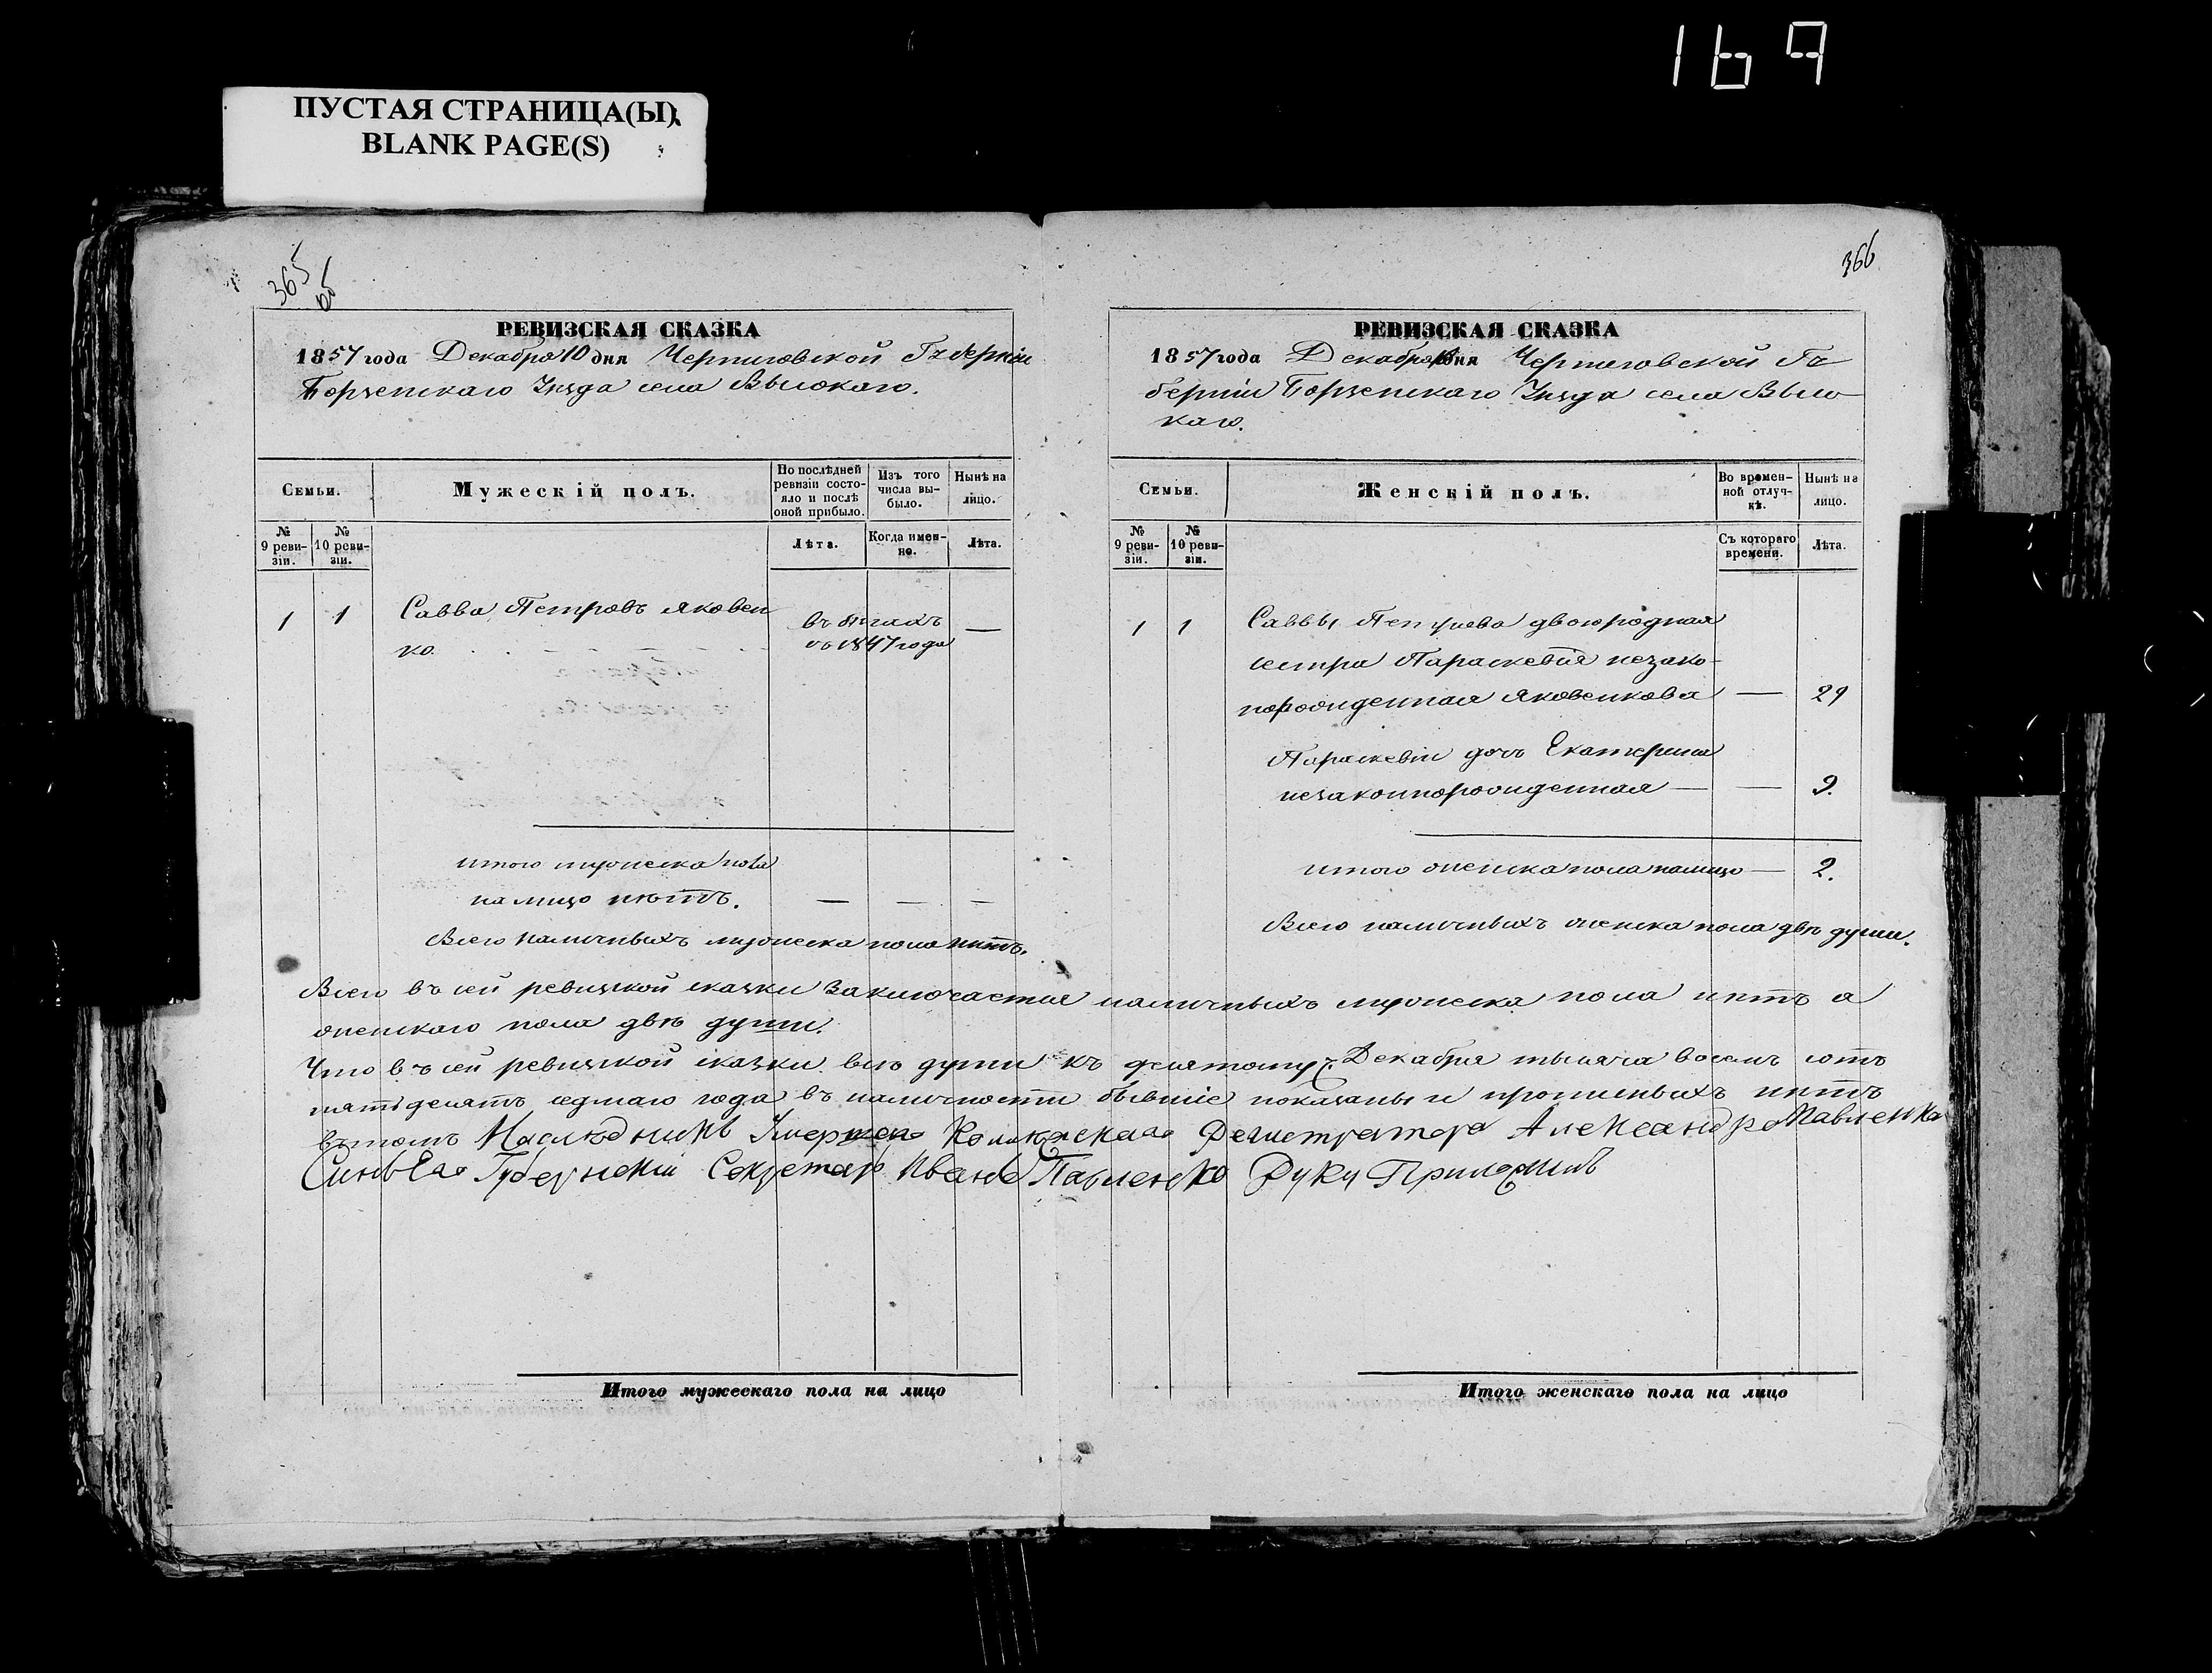 169
ПУСТАЯ СТРАНИЦА(Ы)
BLANK PAGE(S)
365
об
РЕВИЗСКАЯ СКАЗКА
1857 года Декабря 10 дня Черниговской Губерніи
Борзенскаго Уѣзда села Высокаго.
Семьи.
Мужескій полъ.
По послѣдней ревизіи состояло и послѣ оной прибыло.
Изъ того числа выбыло.
Нынѣ на лицо.
№ 9 ревизіи.
№ 10 ревизіи.
Лѣта.
Когда именно.
Лѣта.
1 1 Савва Петровъ Яковен
ко.
въ бѣгахъ
съ 1847 года
—
итого мужеска пола
на лицо нѣтъ. — — —
Всего наличныхъ мужеска пола нѣтъ.
366
РЕВИЗСКАЯ СКАЗКА
1857 года Декабря 10 дня Черниговской Гу
берніи Борзенскаго Уѣзда села Высо
каго.
Семьи.
Женскій полъ.
Во временной отлучкѣ.
Нынѣ на лицо.
№ 9 ревизіи.
№ 10 ревизіи.
Съ котораго времени.
Лѣта.
1 1 Саввы Петрова двоюродная
сестра Параскевія незако-
норожденная Яковенкова — 29
Параскевіи дочь Екатерина
незаконнорожденная — — 9.
итого женска пола налицо — 2.
Всего наличныхъ женска пола двѣ души.
Всего въ сей ревизской сказки заключается наличныхъ мужеска пола нѣтъ а
женскаго пола двѣ души.
Что въ сей ревизской сказки всѣ души къ десятому Декабря тысяча восемь сотъ
пятьдесятъ седмаго года въ наличности бывшіе показаны и прописныхъ нѣтъ
въ томъ Наслѣдникъ Умершаго Колежскаго Регистратора Александра Павленка
Синъ Его Губернскій Секретарь Иванъ Павленко Руку Приложилъ
Итого мужескаго пола на лицо
Итого женскаго пола на лицо